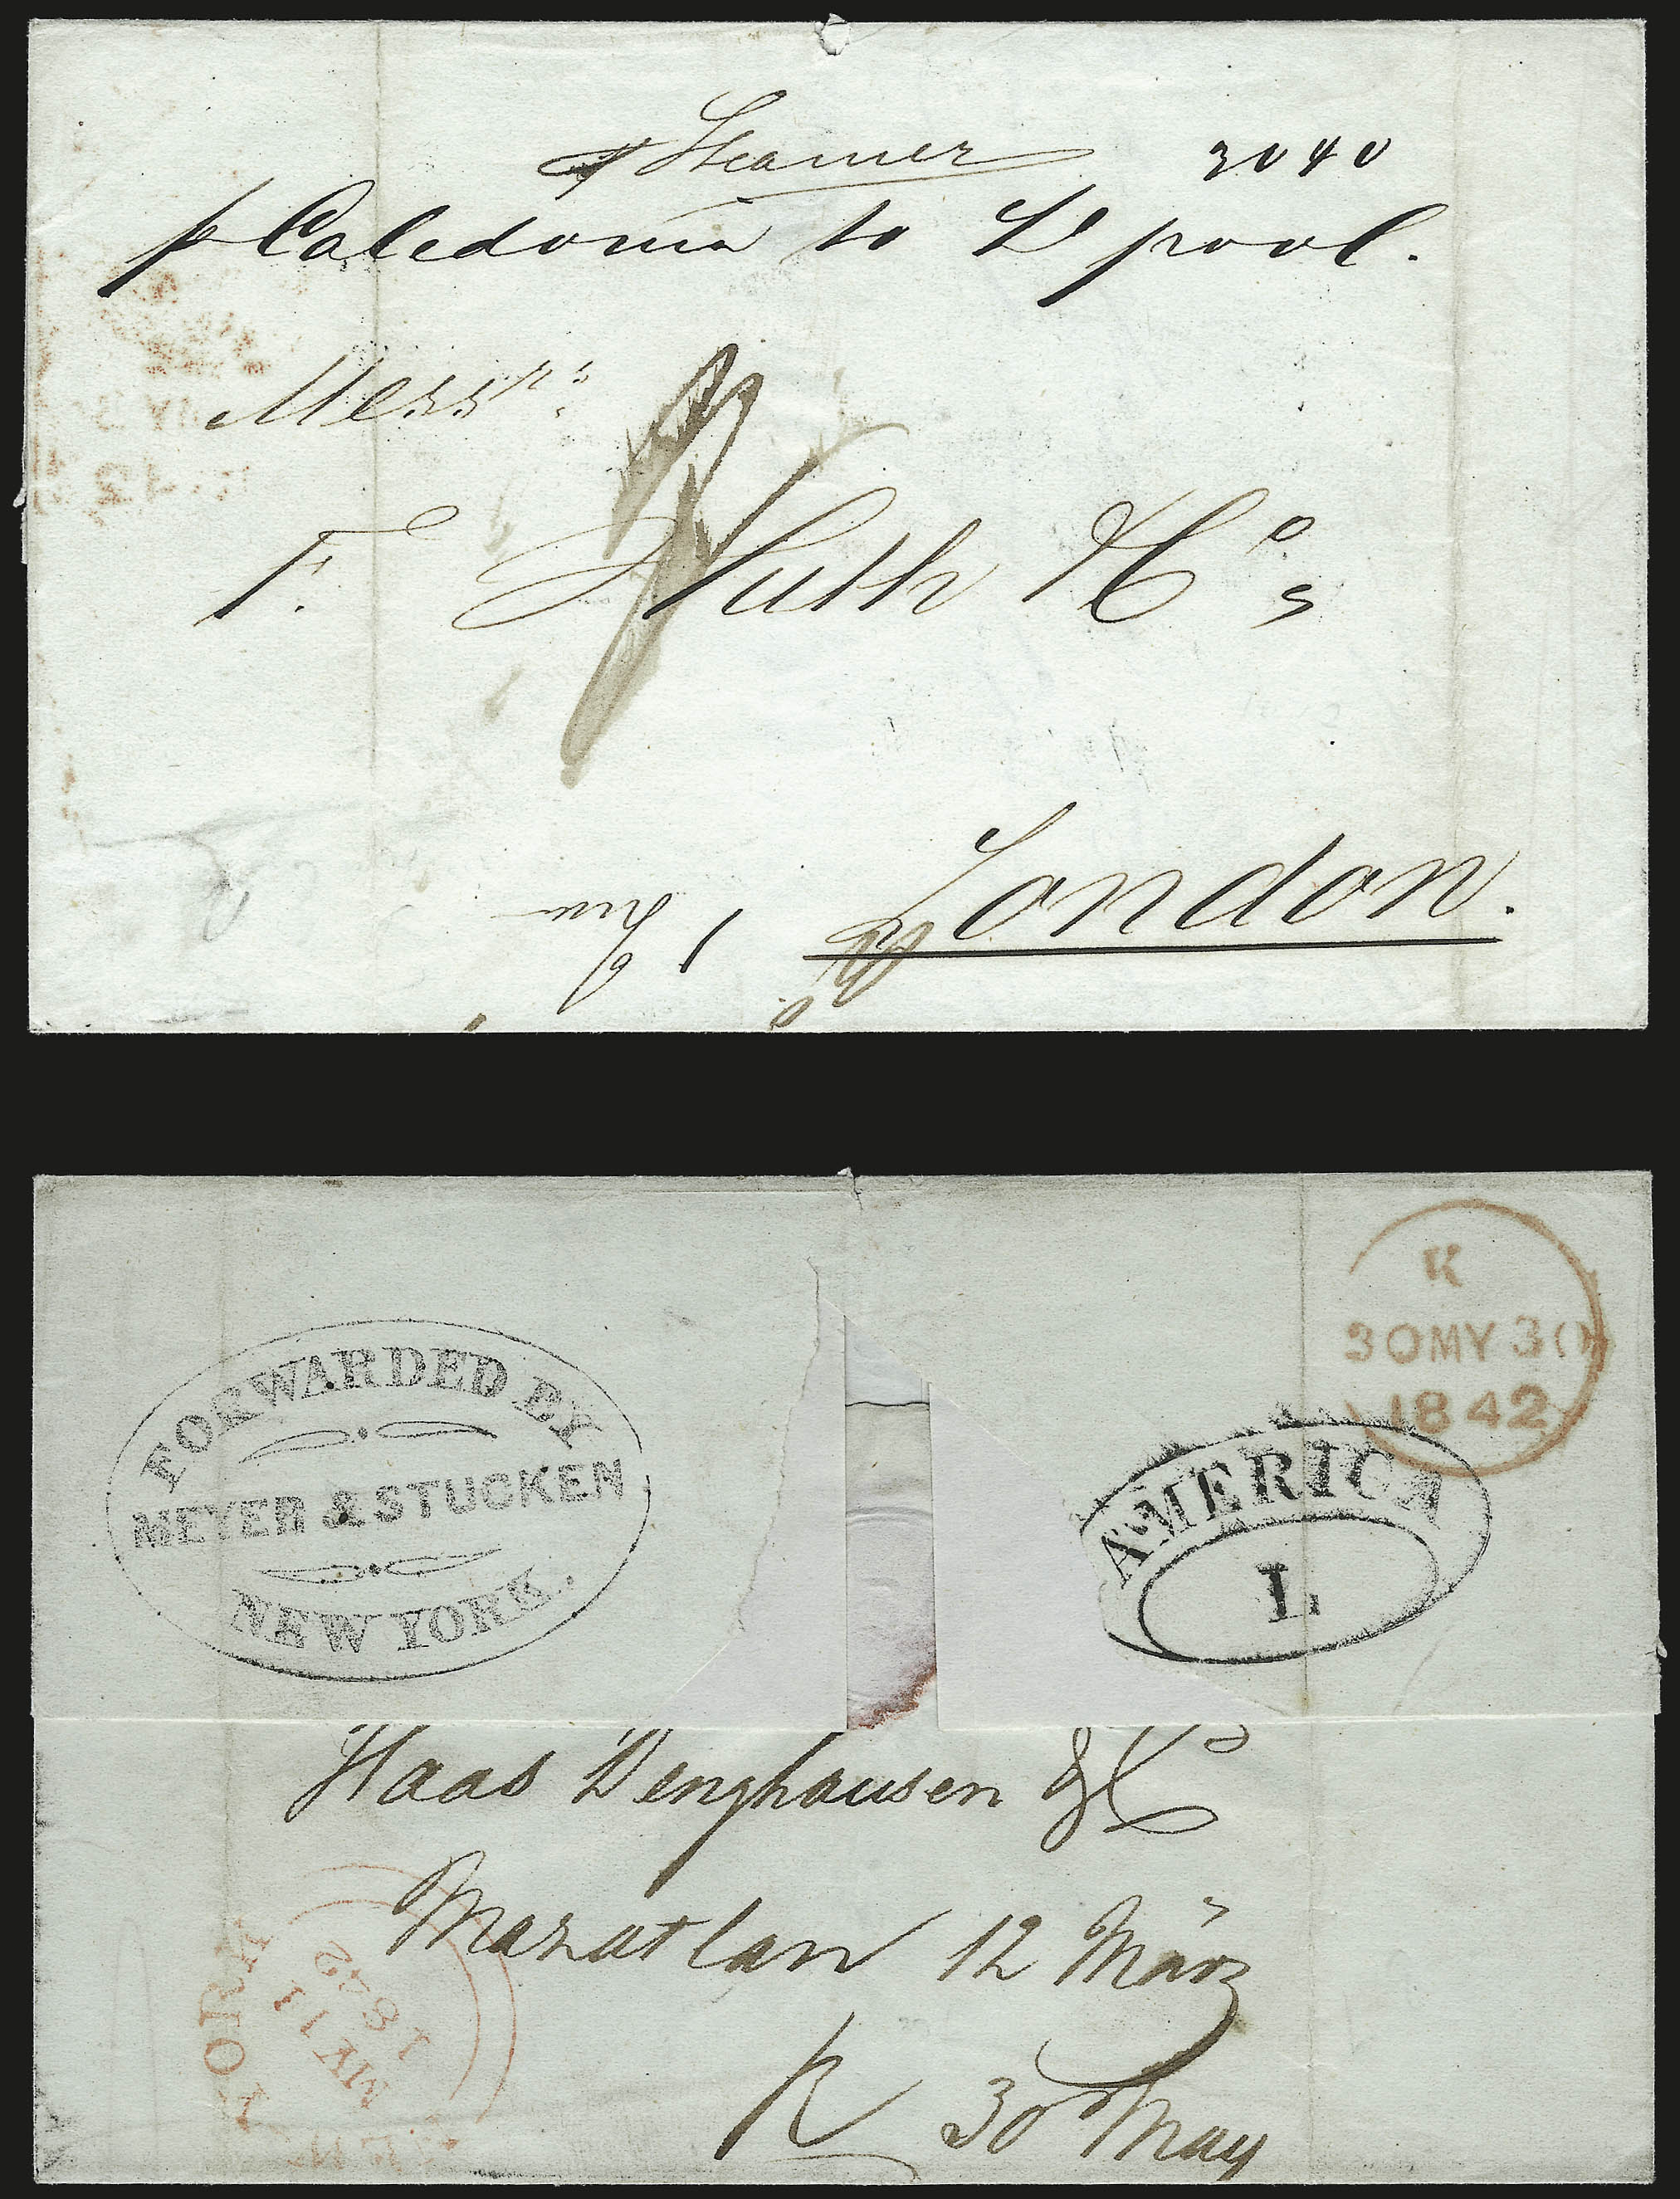 p Steamer 3040
p Caledonia to L'pool.
Messrs:
F. Huth & Co
London.
1
FORWARDED BY
MEYER & STUCKEN
NEW YORK.
K
30MY30
1842
AMERICA
L
Haas Denghausen & Co
Mazatlan 12 März
R 30 May
NEW YORK
MY 11
1842